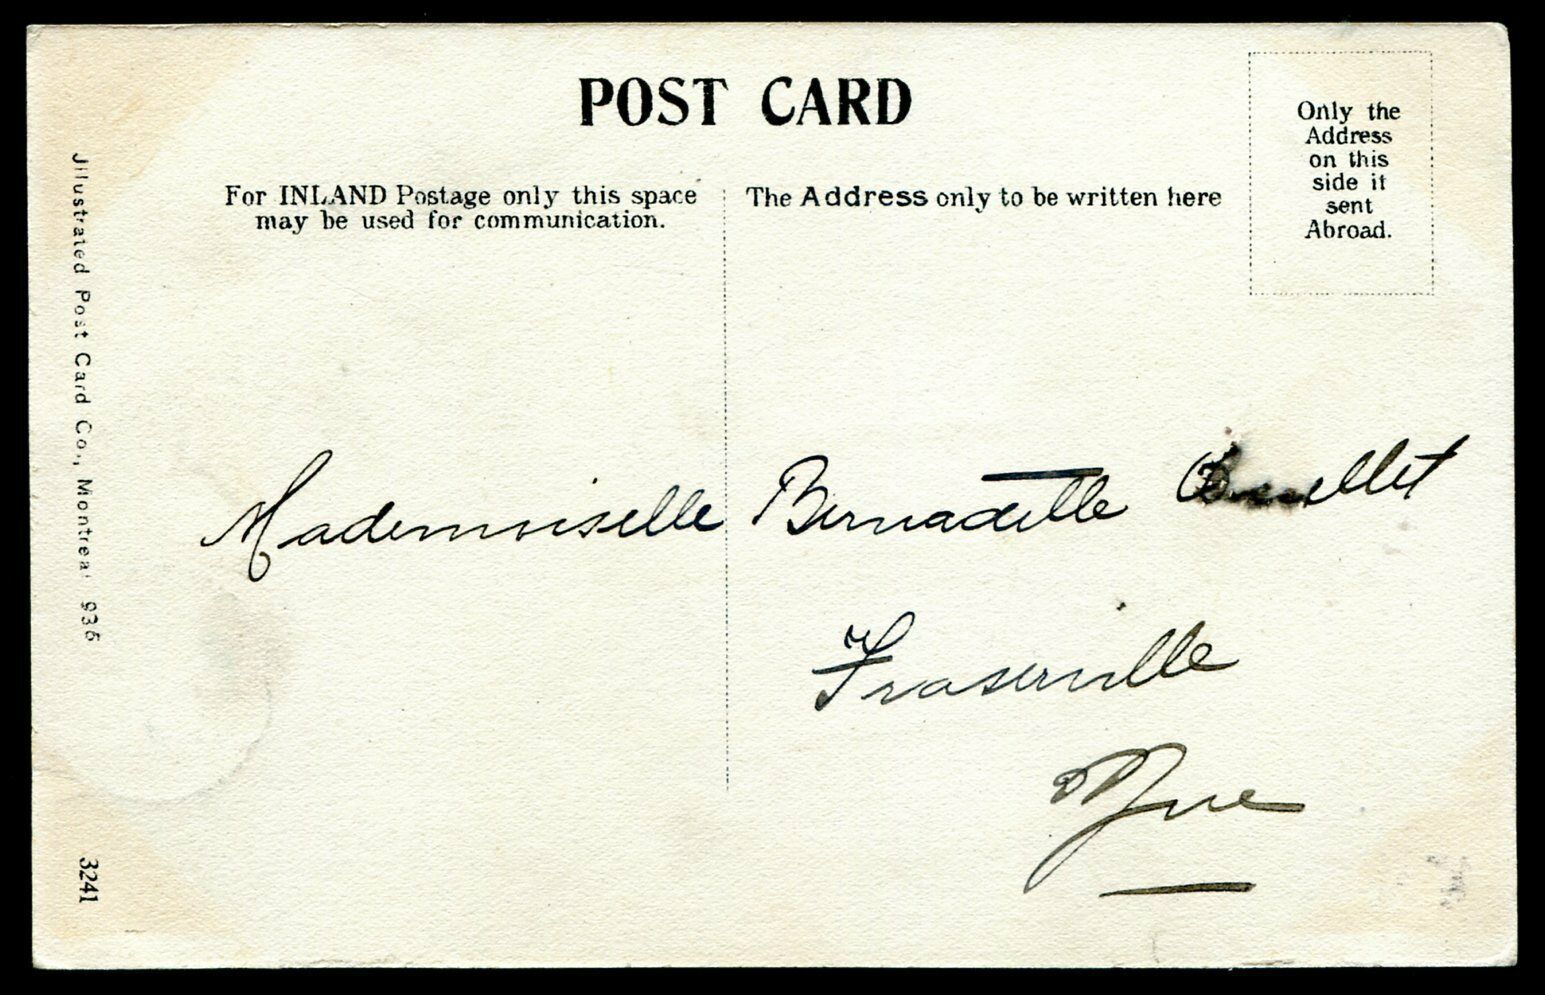 POST CARD
Only the
Address
on this
side if
sent
Abroad.
For INLAND Postage only this space
may be used for communication.
The Address only to be written here
Mademoiselle Bernadette
Fraserville
Que
Illustrated Post Card Co., Montreal 936
3241